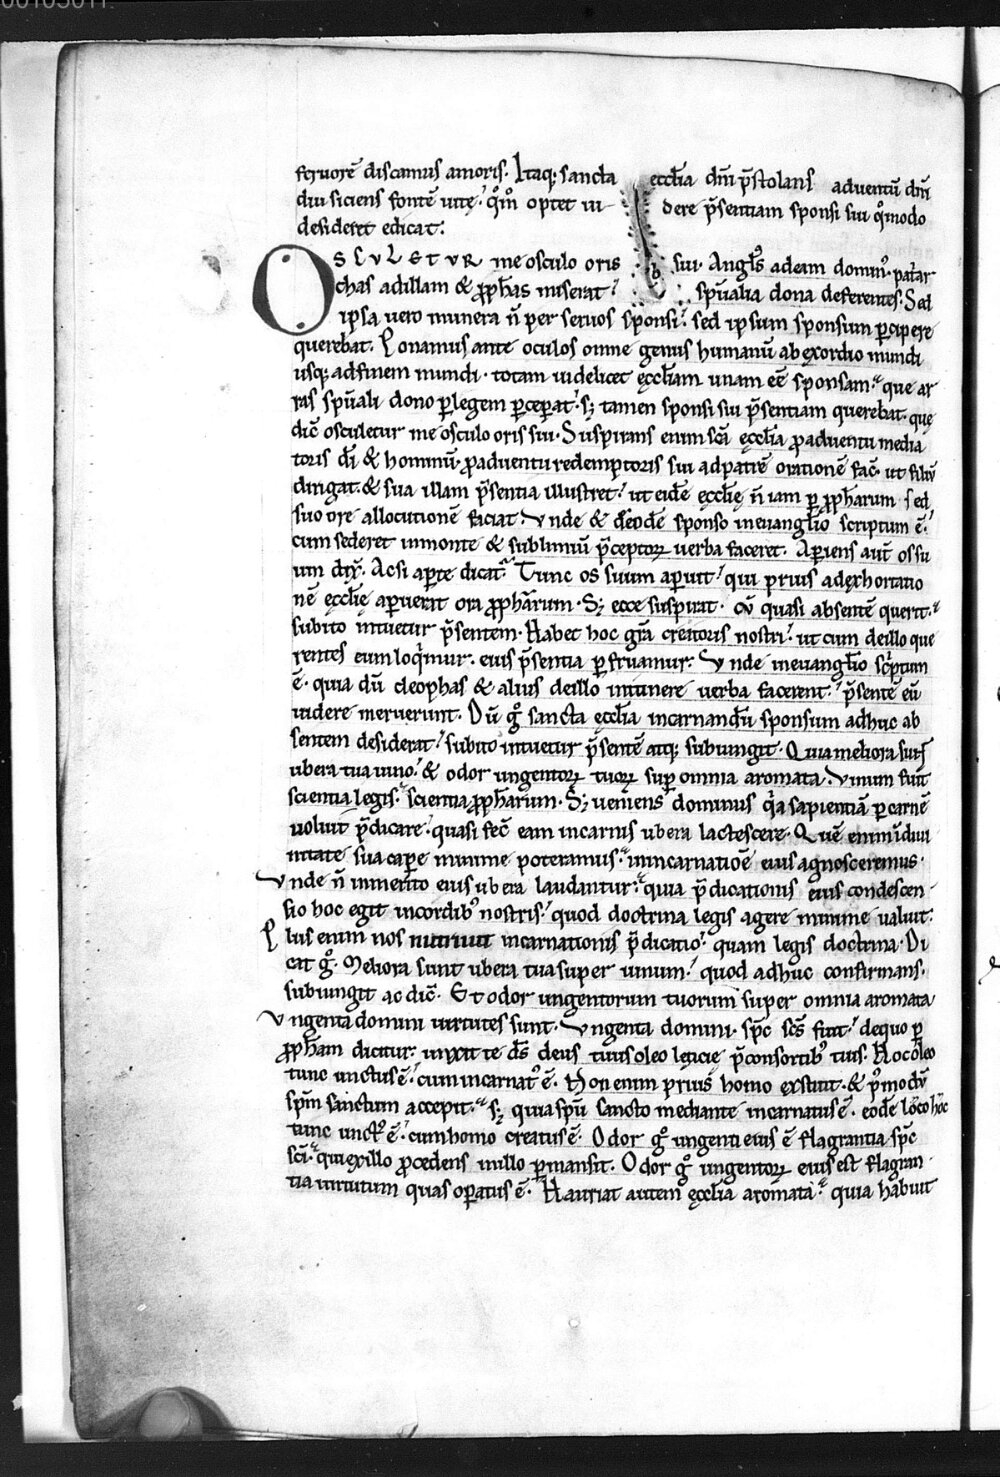 00105011
feruorē discamus amoris. Itaq; sancta ecclīa dm̄ p̄stolans aduentū dm̄
diu siciens fontē uitę. qm̄ optet uidere p̄sentiam sponsi sui qͦmodo
desideret edicat.
OSCVLETVR me osculo oris sui. Angl̄s adeam domin᷒ patͥar
chas adillam & ꝓph̄as miserat. sp̄ualia dona deferentes. Sed
ipsa uero munera n̄ per seruos sponsi. sed ipsum sponsum ꝑcipere
querebat. Ponamus ante oculos omne genus humanū ab exordio mundi
usq; adfinem mundi. totam uidelicet ęccl̄iam unam eē sponsam. que ar
ras sp̄uali dono ꝑ legem ꝑceperat. s; tamen sponsi sui p̄sentiam querebat. quę
dic̄ osculetur me osculo oris sui. Suspirans enim sc̄a ęccl̄ia ꝓ aduentu media
toris dī & hominū. ꝓ aduentu redemptoris sui ad patrē orationē fac̄. ut filiū
dirigat. & sua illam p̄sentia illustret. ut eidē ęccl̄ię n̄ iam ꝑ ꝓph̄arum sed
suo ore allocutionē faciat. Vnde & deodē sponso ineuangl̄io scriptum ē.
cum sederet inmonte & sublimiū p̄ceptoꝝ uerba faceret. Aperiens aut̄ os su
um dix̄. Acsi aꝑte dicat. Tunc os suum aperuit. qui prius adexhortatio
nē ęccl̄ię aperuerat ora ꝓph̄arum. S; ecce suspirat. cū quasi absentē querit.
subito intuetur p̄sentem. Habet hoc gr̄a creatoris nostri. ut cum deillo que
rentes eum loqͥmur. eius p̄sentia ꝑfruamur. Vnde ineuangl̄io scͥptum
ē. quia dū cleophas & alius deillo initinere uerba facerent. p̄sentē eū
uidere meruerunt. Dū gͦ sancta ęccl̄ia incarnandū sponsum adhuc ab
sentem desiderat. subito intuetur p̄sentē atq; subiungit. Quia meliora sunt
ubera tua uino. & odor ungentoꝝ tuoꝝ suꝑ omnia aromata. Vinum fuit
scientia legis. scientia ꝓph̄arum. S; ueniens dominus qͥa sapientiā ꝑ carnē
uoluit p̄dicare. quasi fec̄ eam incarnis ubera lactescere. Quē enim ī diui
nitate sua capere minime poteramus. inincarnatioē eius agnosceremus.
Vnde n̄ inmerito eius ubera laudantur. quia p̄dicationis eius condescen
sio hoc egit incordib᷒ nostris. quod doctrina legis agere minime ualuit.
Plus enim nos nutriuit incarnationis p̄dicatio. quam legis doctrina. Di
cat gͦ. Meliora sunt ubera tua super uinum. quod adhuc confirmans.
subiungit ac dic̄. Et odor ungentorum tuorum super omnia aromata
Vngenta domini uirtutes sunt. Vngenta domini. sp̄c sc̄s fuit. dequo ꝑ
ꝓph̄am dicitur. inxit te d̄s deus tuus oleo lęticię p̄consortib᷒ tuis. Hoc oleo
tunc unctus ē. cum incarnat᷒ ē. Non enim prius homo exstitit. & pͦmodū
sp̄m sanctum accepit. s; quia sp̄u sancto mediante incarnatus ē. eodē loco hoc
tunc unct᷒ ē. cum homo creatus ē. Odor gͦ ungenti eius ē flagrantia sp̄c
sc̄i. qui exillo ꝓcedens inillo ꝑmansit. Odor gͦ ungentoꝝ eius est flagran
tia uirtutum quas oꝑatus ē. Hauriat autem ęccl̄ia aromata. quia habuit